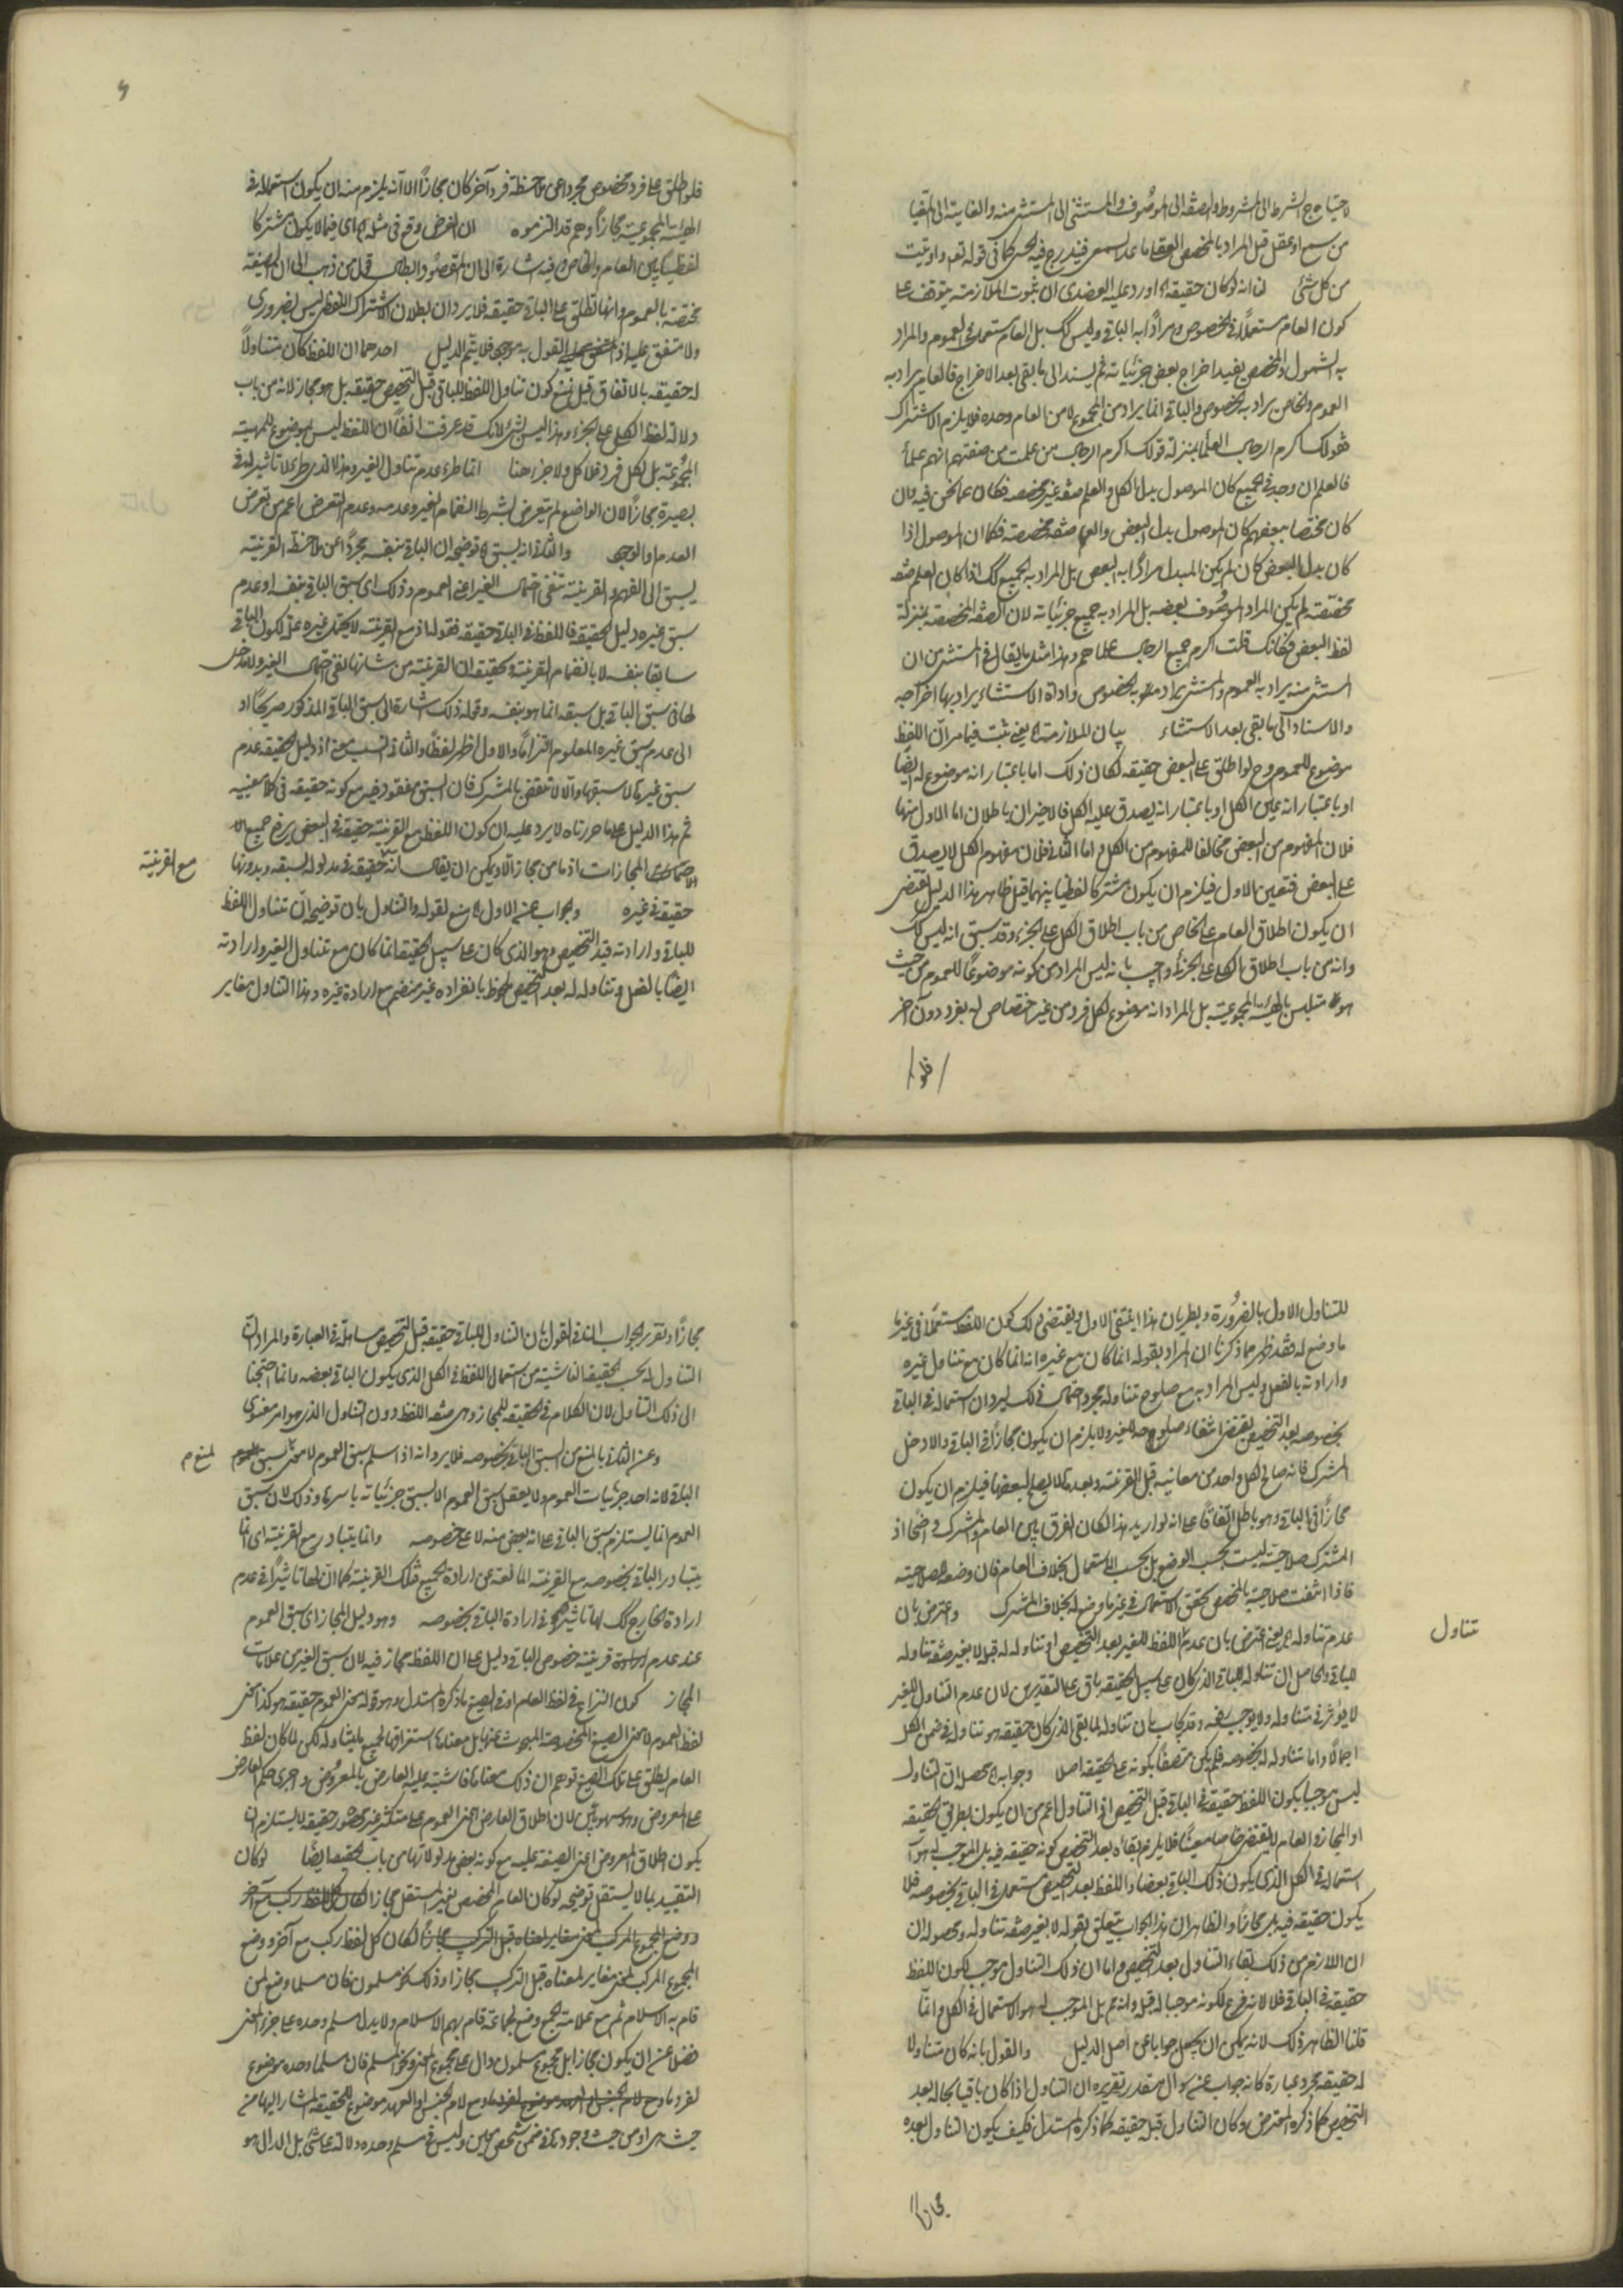 لاحتياج الشرط الى المشروط والصفة الى الموصوف والمستثنى الى المستثنى منه والغاية الى المغيا
من سمع او عقل قيل المراد بالمخصص العقل ما عدا السمعى فيندرج فيه الحسى كما فى قوله تعه واوتيت
من كل شئ لنا انه لو كان حقيقة اه اورد عليه العضدى ان ثبوت الملازمة يتوقف على
كون العام مستعملا فى الخصوص ومرادًا به الباقى وليس كك بل العام مستعمل فى العموم والمراد
به الشمول والمخصص يفيد اخراج بعض جزئياته ثم يسند الى ما بقى بعد الاخراج فالعام يراد به
العموم والخاص يراد به الخصوص والباقى انما يراد من المجموع لا من العام وحده فلا يلزم الاشتراك
فقولك اكرم الرجال العلماء بمنزلة قولك اكرم الرجال من علمت من صفتهم انهم علماء
فالعلم ان وجد فى الجميع كان الموصول بدل الكل والعلم صفة غير مخصصة فكان عما نحن فيه وان
كان مختصا ببعضهم كان الموصول بدل البعض والعلم صفة مخصصة فكما ان الموصول اذا
كان بدل البعض كان لم يكن المبدل مرادًا به البعض بل المراد به الجميع كك اذا كان العلم صفة
مخصصة لم يكن المراد بالموصوف بعضه بل المراد به جميع جزئياته لان الصفة المخصصة بمنزلة
لفظ البعض فكانك قلت اكرم جميع الرجال علماءهم وهذا مثل ما يقال فى المستثنى من ان
المستثنى منه يراد به العموم والمستثنى يراد به الخصوص واداة الاستثناء يراد بها اخراجه
والاسناد الى ما بقى بعد الاستثناء بيان الملازمة اه يعنى ثبت فيما مر ان اللفظ
موضوع للعموم وح لو اطلق على البعض حقيقة لكان ذلك اما باعتبار انه موضوع له ايضًا
او باعتبار انه عين الكل او باعتبار انه يصدق عليه الكل فالاخيران باطلان اما الاول منهما
فلان المفهوم من البعض مخالفا للمفهوم من الكل واما الثانى فلان مفهوم الكل لا يصدق
على البعض فتعين الاول فيلزم ان يكون مشتركا لفظيا بينهما قيل ظاهر هذا الدليل يقتضى
ان يكون اطلاق العام على الخاص من باب اطلاق الكل على الجزء وقد سبق انه ليس كك
وانه من باب اطلاق الكلى على الجزئى واجيب بانه ليس المراد من كونه موضوعًا للعموم من حيث
هو متلبس بالهيئة المجموعية بل المراد انه موضوع لكل فرد من غير اختصاص له بفرد دون آخر
فلو
فلو اطلق على فرد مخصوص مجردا عن ملاحظة فرد آخر كان مجازًا الا انه يلزم منه ان يكون استعماله فى
الهيئة المجموعية مجازًا وهم قد التزموه ان الفرض وقع فى مثله اه اى فيما لا يكون مشتركا
لفظيا بين العام والخاص وفيه اشارة الى ان المقصود ابطال قول من ذهب الى ان الصيغة
مختصة بالعموم وانها تطلق على الباقى حقيقة فلا يرد ان بطلان الاشتراك اللفظى ليس بضرورى
ولا متفق عليه اذ القول به موجود فلا يتم الدليل احدهما ان اللفظ كان متناولاً
له حقيقة بالاتفاق قيل نمنع كون تناول اللفظ للباقى قبل التخصيص حقيقة بل هو مجاز لانه من باب
دلالة لفظ الكل على الجزء وهذا ليس بشئ لانك قد عرفت آنفًا ان اللفظ ليس بموضوع للهيئة
المجموعية بل لكل فرد فلا كل ولا جزء هنا انما طرء عدم تناول الغير وهذا الذى طرء لا تاثير له فى
بصيرة مجازًا لان الواضع لم يتعرض لشرط انضمام الغير وعدمه وعدم التعرض اعم من تعرض
العدم او الوجود والثانى انه يسبق اه توضيحه ان الباقى بنفسه مجردًا عن ملاحظة القرينة
يسبق الى الفهم والقرينة تنفى احتمال الغير اعنى العموم وذلك اى سبق الباقى بنفسه او عدم
سبق غيره دليل الحقيقة فاللفظ فى الباقى حقيقة فقوله اذ مع القرينة لا يحتمل غيره علة لكون الباقى
سابقا بنفسه لا بانضمام القرينة وحقيقته ان القرينة من شانها نفى احتمال الغير ولا مدخل
لها فى سبق الباقى بل سبقه انما هو بنفسه وقوله ذلك اشارة الى سبق الباقى المذكور صريحًا او
الى عدم سبق غيره المعلوم التزامًا والاول اظهر لفظًا والثانى انسب معنى اذ دليل الحقيقة عدم
سبق غيرها لا سبقها والا لانتقض بالمشترك فان السبق مفقود فيه مع كونه حقيقة فى كلا معنييه
ثم هذا الدليل على ما حررناه لا يرد عليه ان كون اللفظ مع القرينة حقيقة فى البعض يرفع جميع الا
المجازات اذ ما من مجاز الا ويمكن ان يقال انه حقيقة فى مدلوله لسبقه وبدونها
مع القرينة
حقيقة فى غيره والجواب عن الاول اه منع لقوله والتناول باق توضيحه ان تناول اللفظ
للباقى وارادته قبل التخصيص وهو الذى كان على سبيل الحقيقة انما كان مع تناول الغير وارادته
ايضًا بالفعل وتناوله له بعد التخصيص ملحوظ بانفراده غير منضم مع ارادة غيره وهذا التناول مغاير
للتناول الاول بالضرورة وبطريان هذا انتفى الاول ويقتضى ذلك كون اللفظ مستعملًا فى غير ما
ما وضع له فقد ظهر مما ذكرنا ان المراد بقوله انما كان مع غيره انه انما كان مع تناول غيره
وارادته بالفعل وليس المراد به مع صلوح تناوله مجرد احتمال ذلك ليرد ان استعماله فى الباقى
بخصوصه بعد التخصيص يقتضى انتفاء صلوحه للغير ولا يلزم ان يكون مجازًا فى الباقى والا دخل
المشترك فانه صالح لكل واحد من معانيه قبل القرينة وبعدها لا يصلح لبعضها فيلزم ان يكون
مجازًا فى الباقى وهو باطل اتفاقًا على انه لو اريد هذا لكان الفرق بين العام والمشترك واضحا اذ
المشترك صلاحيته ليست بحسب الوضع بل بحسب الاستعمال بخلاف العام فان وضعه للصلاحية
فاذا انتفت صلاحيته بالمخصص تحقق الاستعمال فى غير ما وضع له بخلاف المشترك واعترض بان
عدم تناوله اه يعنى اعترض بان عدم اللفظ للغير بعد التخصيص او تناوله له قبله لا يغير صفة تناوله
تناول
للباقى والحاصل ان تناوله للباقى الذى كان على سبيل الحقيقة باق على التقديرين لان عدم التناول للغير
لا يؤثر فى تناوله ولا يوجب رفعه وقد يجاب بان تناوله لما بقى الذى كان حقيقة هو تناوله فى ضمن الكل
اجمالًا واما تناوله له بخصوصه فلم يكن متصفًا بكونه على الحقيقة اصلا وجوابه اه محصله ان التناول
ليس موجبا لكون اللفظ حقيقة فى الباقى قبل التخصيص اذ التناول اعم من ان يكون بطريق الحقيقة
او المجاز والعام لا يقتضى خاصا معينًا فلا يلزم لبقائه بعد التخصيص كونه حقيقة فيه بل الموجب له هو
استعماله فى الكل الذى يكون ذلك الباقى بعضا واللفظ بعد التخصيص مستعمل فى الباقى بخصوصه فلا
يكون حقيقة فيه بل مجازًا والظاهر ان هذا الجواب يتعلق بقوله لا يغير صفة تناوله ومحصوله ان
ان اللازم من ذلك بقاء التناول بعد التخصيص واما ان ذلك التناول موجب لكون اللفظ
حقيقة فى الباقى فلا لانه فرع لكونه موجبا له قبله وانه لم بل الموجب له هو الاستعمال فى الكل وانما
قلنا الظاهر ذلك لانه يمكن ان يجعل جوابا عن اصل الدليل والقول بانه كان متناولا
له حقيقة مجرد عبارة كانه جواب عن سؤال مقدر تقريره ان التناول اذا كان باقيا بحاله بعد
التخصيص كما ذكره المعترض وكان التناول قبله حقيقة كما ذكره المستدل فكيف يكون التناول بعده
مجازا
مجازًا وتقرير الجواب ان القول بان التناول للباقى حقيقة قبل التخصيص مساهلة فى العبارة والمراد ان
التناول له بحسب الحقيقة الناشئة من استعمال اللفظ فى الكل الذى يكون الباقى بعضه وانما احتجنا
الى ذلك التناول لان الكلام فى الحقيقة والمجاز وهى صفة اللفظ دون التناول الذى هو امر معنوى
وعن الثانى بالمنع من السبق الباقى بخصوصه فلا يرد انه اذ اسلم سبق العموم لا معنى لمنع سبق
لمنع م
الباقى لانه احد جزئيات العموم ولا يعقل سبق العموم الا بسبق جزئياته باسرها وذلك لان سبق
العموم انما يستلزم سبق الباقى على انه بعض منه لا على خصوصه وانما يتبادر مع القرينة اى انما
يتبادر الباقى بخصوصه مع القرينة المانعة عن ارادة الجميع فتلك القرينة كما ان لها تاثيرًا فى عدم
ارادة الخارج كك لها تاثير فى ارادة الباقى بخصوصه وهو دليل المجاز اى سبق العموم
عند عدم قرينة خصوص الباقى دليل على ان اللفظ مجاز فيه لان سبق الغير من علامات
المجاز كون النزاع فى لفظ العام او فى الصيغ ما ذكره المستدل وهو قوله معنى العموم حقيقة هو كذا معنى
لفظ العموم لا معنى الصيغ المخصوصة المبحوث عنها بل معناها استغراقها لجميع ما يتناوله لكن لما كان لفظ
العام يطلق على تلك الصيغ توهم ان ذلك معناها فاشتبه عليه العارض بالمعروض واجرى حكم العارض
على المعروض وهو سهو بيّن لان اطلاق العارض اعنى العموم على متكثر غير محصور حقيقة لا يستلزم ان
يكون اطلاق المعروض اعنى الصيغة عليه مع كونه بعض مدلولاتها من باب الحقيقة ايضًا لو كان
التقييد بما لا يستقل توضيحه لو كان العام المخصص بغير المستقل مجازا
لكان كل لفظ ركب مع آخر ووضع
المجموع المركب لمعنى مغاير لمعناه قبل التركيب مجازا وذلك كمسلمون فان مسلما وضع لمن
قام به الاسلام ثم مع علامة الجمع وضع لجماعة قام بهم الاسلام ولا يدل مسلم وحده على جزء المعنى
فضلا عن ان يكون مجازا بل مجموع مسلمون دال على مجموع المعنى ونحو المسلم فان مسلما وحده موضوع
لفرد ما ومع لام الجنس او العهد موضوع للحقيقة المشار اليها من
حيث هى او من حيث وجودها فى ضمن شخص معين وليس فى مسلم وحده دلالة على شئ بل الدال هو